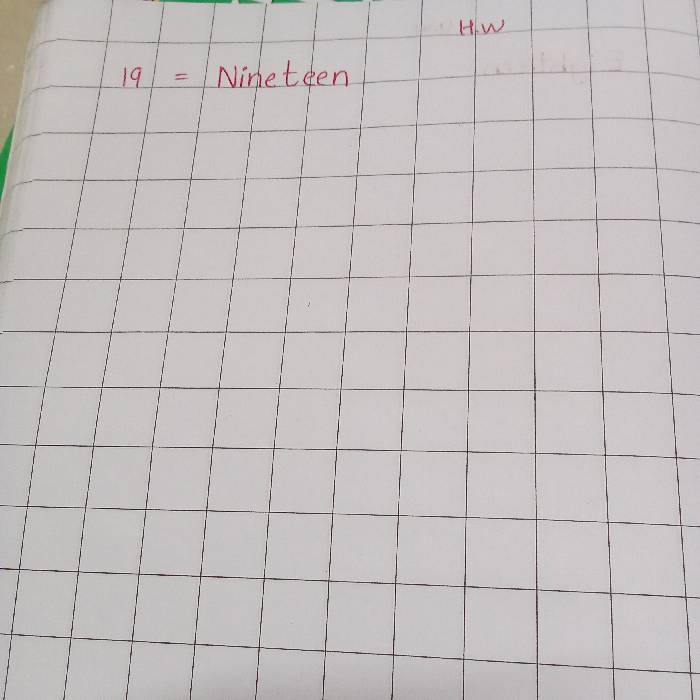 H.W
19 = Nineteen